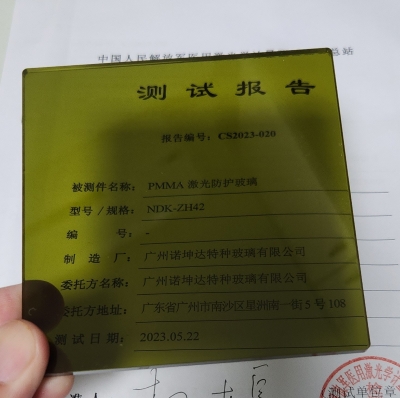 中国人民解放军医用激光
总站
测试报告
报告编号: CS2023-020
被测件名称: PMMA 激光防护玻璃
型号/规格: NDK-ZH42
编 号: -
制 造 厂: 广州诺坤达特种玻璃有限公司
委托方名称: 广州诺坤达特种玻璃有限公司
委托方地址: 广东省广州市南沙区星洲南一街5号108
测试日期: 2023.05.22
准人
测试单位章